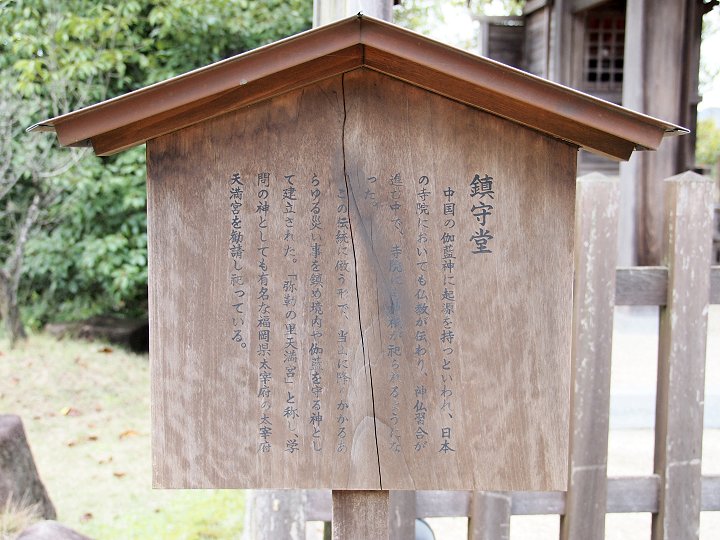 鎮守堂
中国の伽藍神に起源を持つといわれ、日本
の寺院においても仏教が伝わり、神仏習合が
進む中で、寺院に鎮守神が祀られるようにな
った。
この伝統に倣う形で、当山に降りかかるあ
らゆる災い事を鎮め境内や伽藍を守る神とし
て建立された。「弥勒の里天満宮」と称し、学
問の神としても有名な福岡県太宰府の太宰府
天満宮を勧請し祀っている。